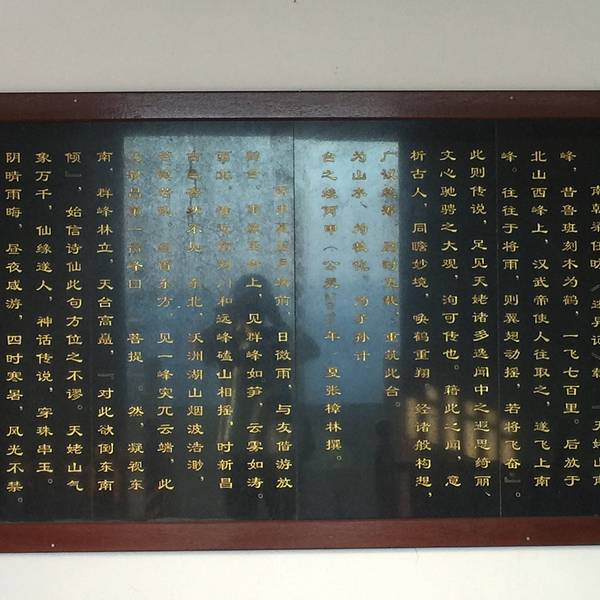 南朝梁任昉《述异记》载『天姥山南
峰，昔鲁班刻木为鹤，一飞七百里。后放于
北山西峰上，汉武帝使人往取之，遂飞上南
峰。往往于将雨，则翼翅动摇，若将飞奋』。
此则传说，足见天姥诸多逸闻中之遐思绮丽、
文心驰骋之大观，洵可传也。藉此之闻，意
析古人，同瞻妙境，唤鹤重翔，经诸般构想，
广议 重筑此台。
为山水、为 为子孙计
台之 年，夏张樟林撰。
前，日微雨，与友偕游放
上，见群峰如笋，云雾如涛。
西北， 川和远峰磕山相摇，时新昌
古邑 不见。东北，沃洲湖山烟波浩渺，
东方，见一峰突兀云端，此
第一高峰曰 菩提。然，凝视东
南，群峰林立，天台高矗，『对此欲倒东南
倾』，始信诗仙此句方位之不谬。天姥山气
象万千，仙缘遂人，神话传说，字珠串玉。
阴晴雨晦，昼夜咸游，四时寒暑，风光不禁。